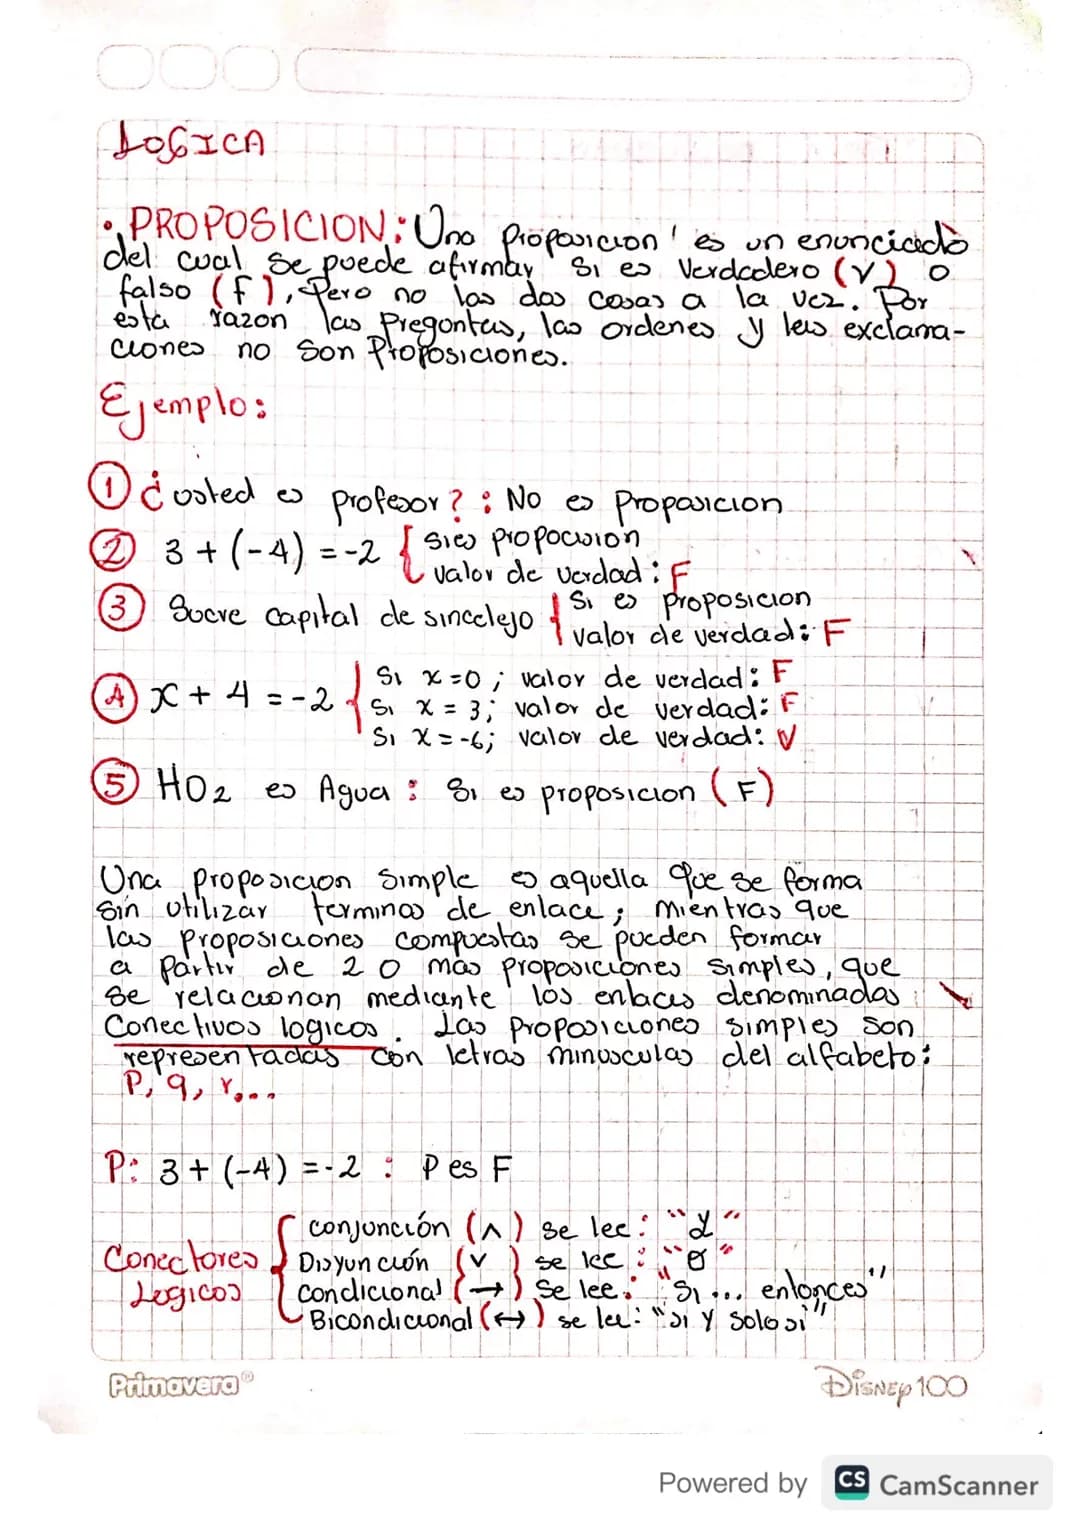 LOGICA
• PROPOSICION: Una proposicion es un enunciado
del cual se puede afirmar si es verdadero (V) o
falso (F), Pero no las dos cosas a la vez. Por
esta razon las Preguntas, las ordenes y las exclama-
ciones no son Proposiciones.
Ejemplo:
① ¿usted es profesor? : No es Proposicion
② 3 + (-4) = -2 { Si es propocision
valor de verdad: F
③ Sucre capital de sincelejo { Si es proposicion
valor de verdad: F
④ x + 4 = -2 { Si x = 0; valor de verdad: F
Si x = 3; valor de verdad: F
Si x = -6; valor de verdad: V
⑤ HO2 es Agua : Si es proposicion (F)
Una proposicion simple es aquella que se forma
sin utilizar terminos de enlace; mientras que
las proposiciones compuestas se pueden formar
a partir de 2 o mas proposiciones simples, que
se relacionan mediante los enlaces denominadas
Conectivos logicos. Las proposiciones simples son
representadas con letras minusculas del alfabeto:
P, q, r,...
P: 3 + (-4) = -2 : P es F
Conectores Logicos { conjunción (∧) se lee: "y"
Disyunción (∨) se lee: "o"
condicional (→) se lee: "si ... entonces"
Bicondicional (↔) se lee: "si y solo si"
Primavera®
Disney 100
Powered by CS CamScanner